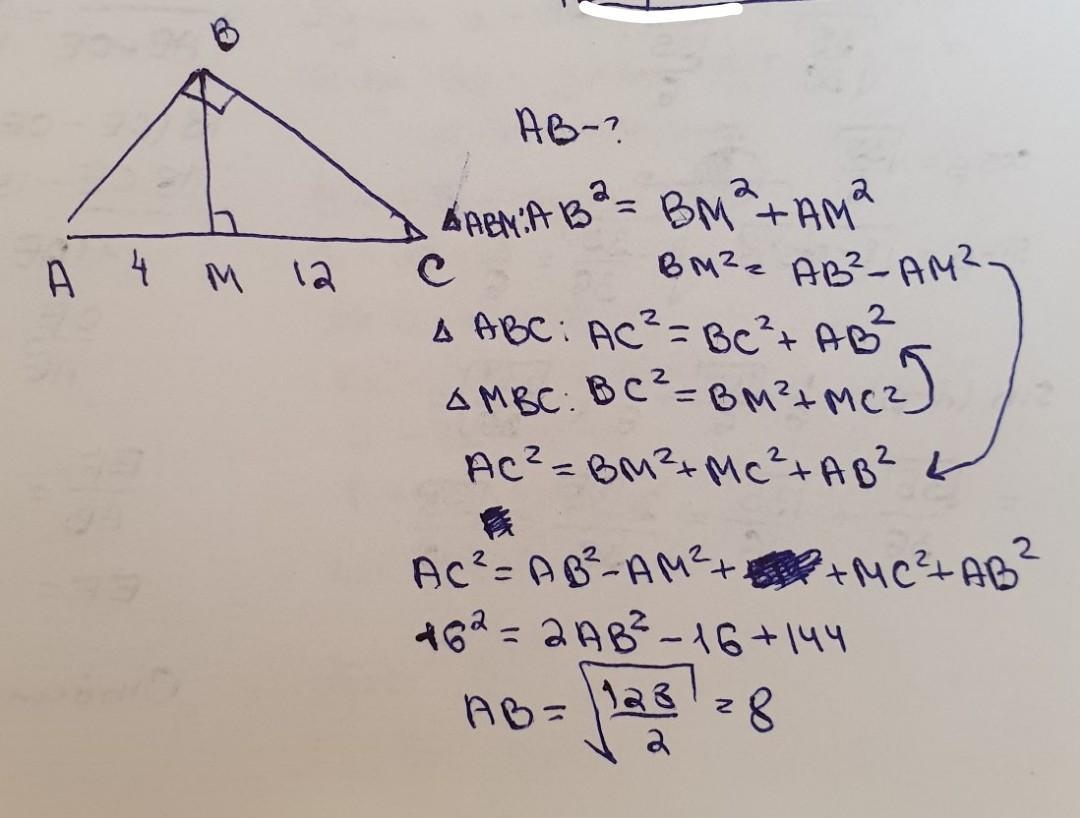 B
A 4 M 12 C
AB-?
△ABM: AB² = BM² + AM²
BM² = AB² - AM²
△ ABC: AC² = BC² + AB²
△ MBC: BC² = BM² + MC²
AC² = BM² + MC² + AB²
AC² = AB² - AM² + + MC² + AB²
16² = 2AB² - 16 + 144
AB = √(128/2) = 8